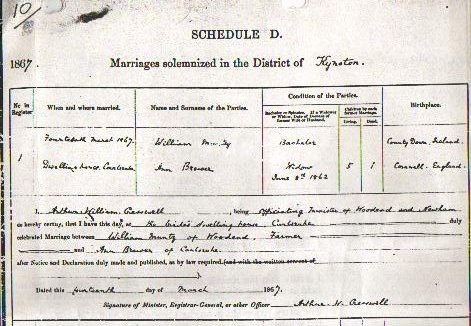 10
SCHEDULE D.
1867. Marriages solemnized in the District of Kyneton.
No in Register
When and where married.
Name and Surname of the Parties.
Condition of the Parties.
Bachelor or Spinster. If a Widower or Widow, Date of Decease of former Wife or Husband.
Children by each former Marriage.
Living. Dead.
Birthplace.
1
Fourteenth March 1867. William Bachelor County Down. Ireland.
Dwelling house, Carlsruhe Ann Brewer Widow 5 1 Cornwall. England.
June 8th 1862
I, Arthur William Cresswell, being officiating Minister of Woodend and Newham
do hereby certify, that I have this day, at the bride's dwelling house Carlsruhe duly
celebrated Marriage between William of Woodend, Farmer
and Ann Brewer of Carlsruhe
after Notice and Declaration duly made and published, as by law required (and with the written consent of
).
Dated this fourteenth day of March 1867.
Signature of Minister, Registrar-General, or other Officer Arthur W. Cresswell